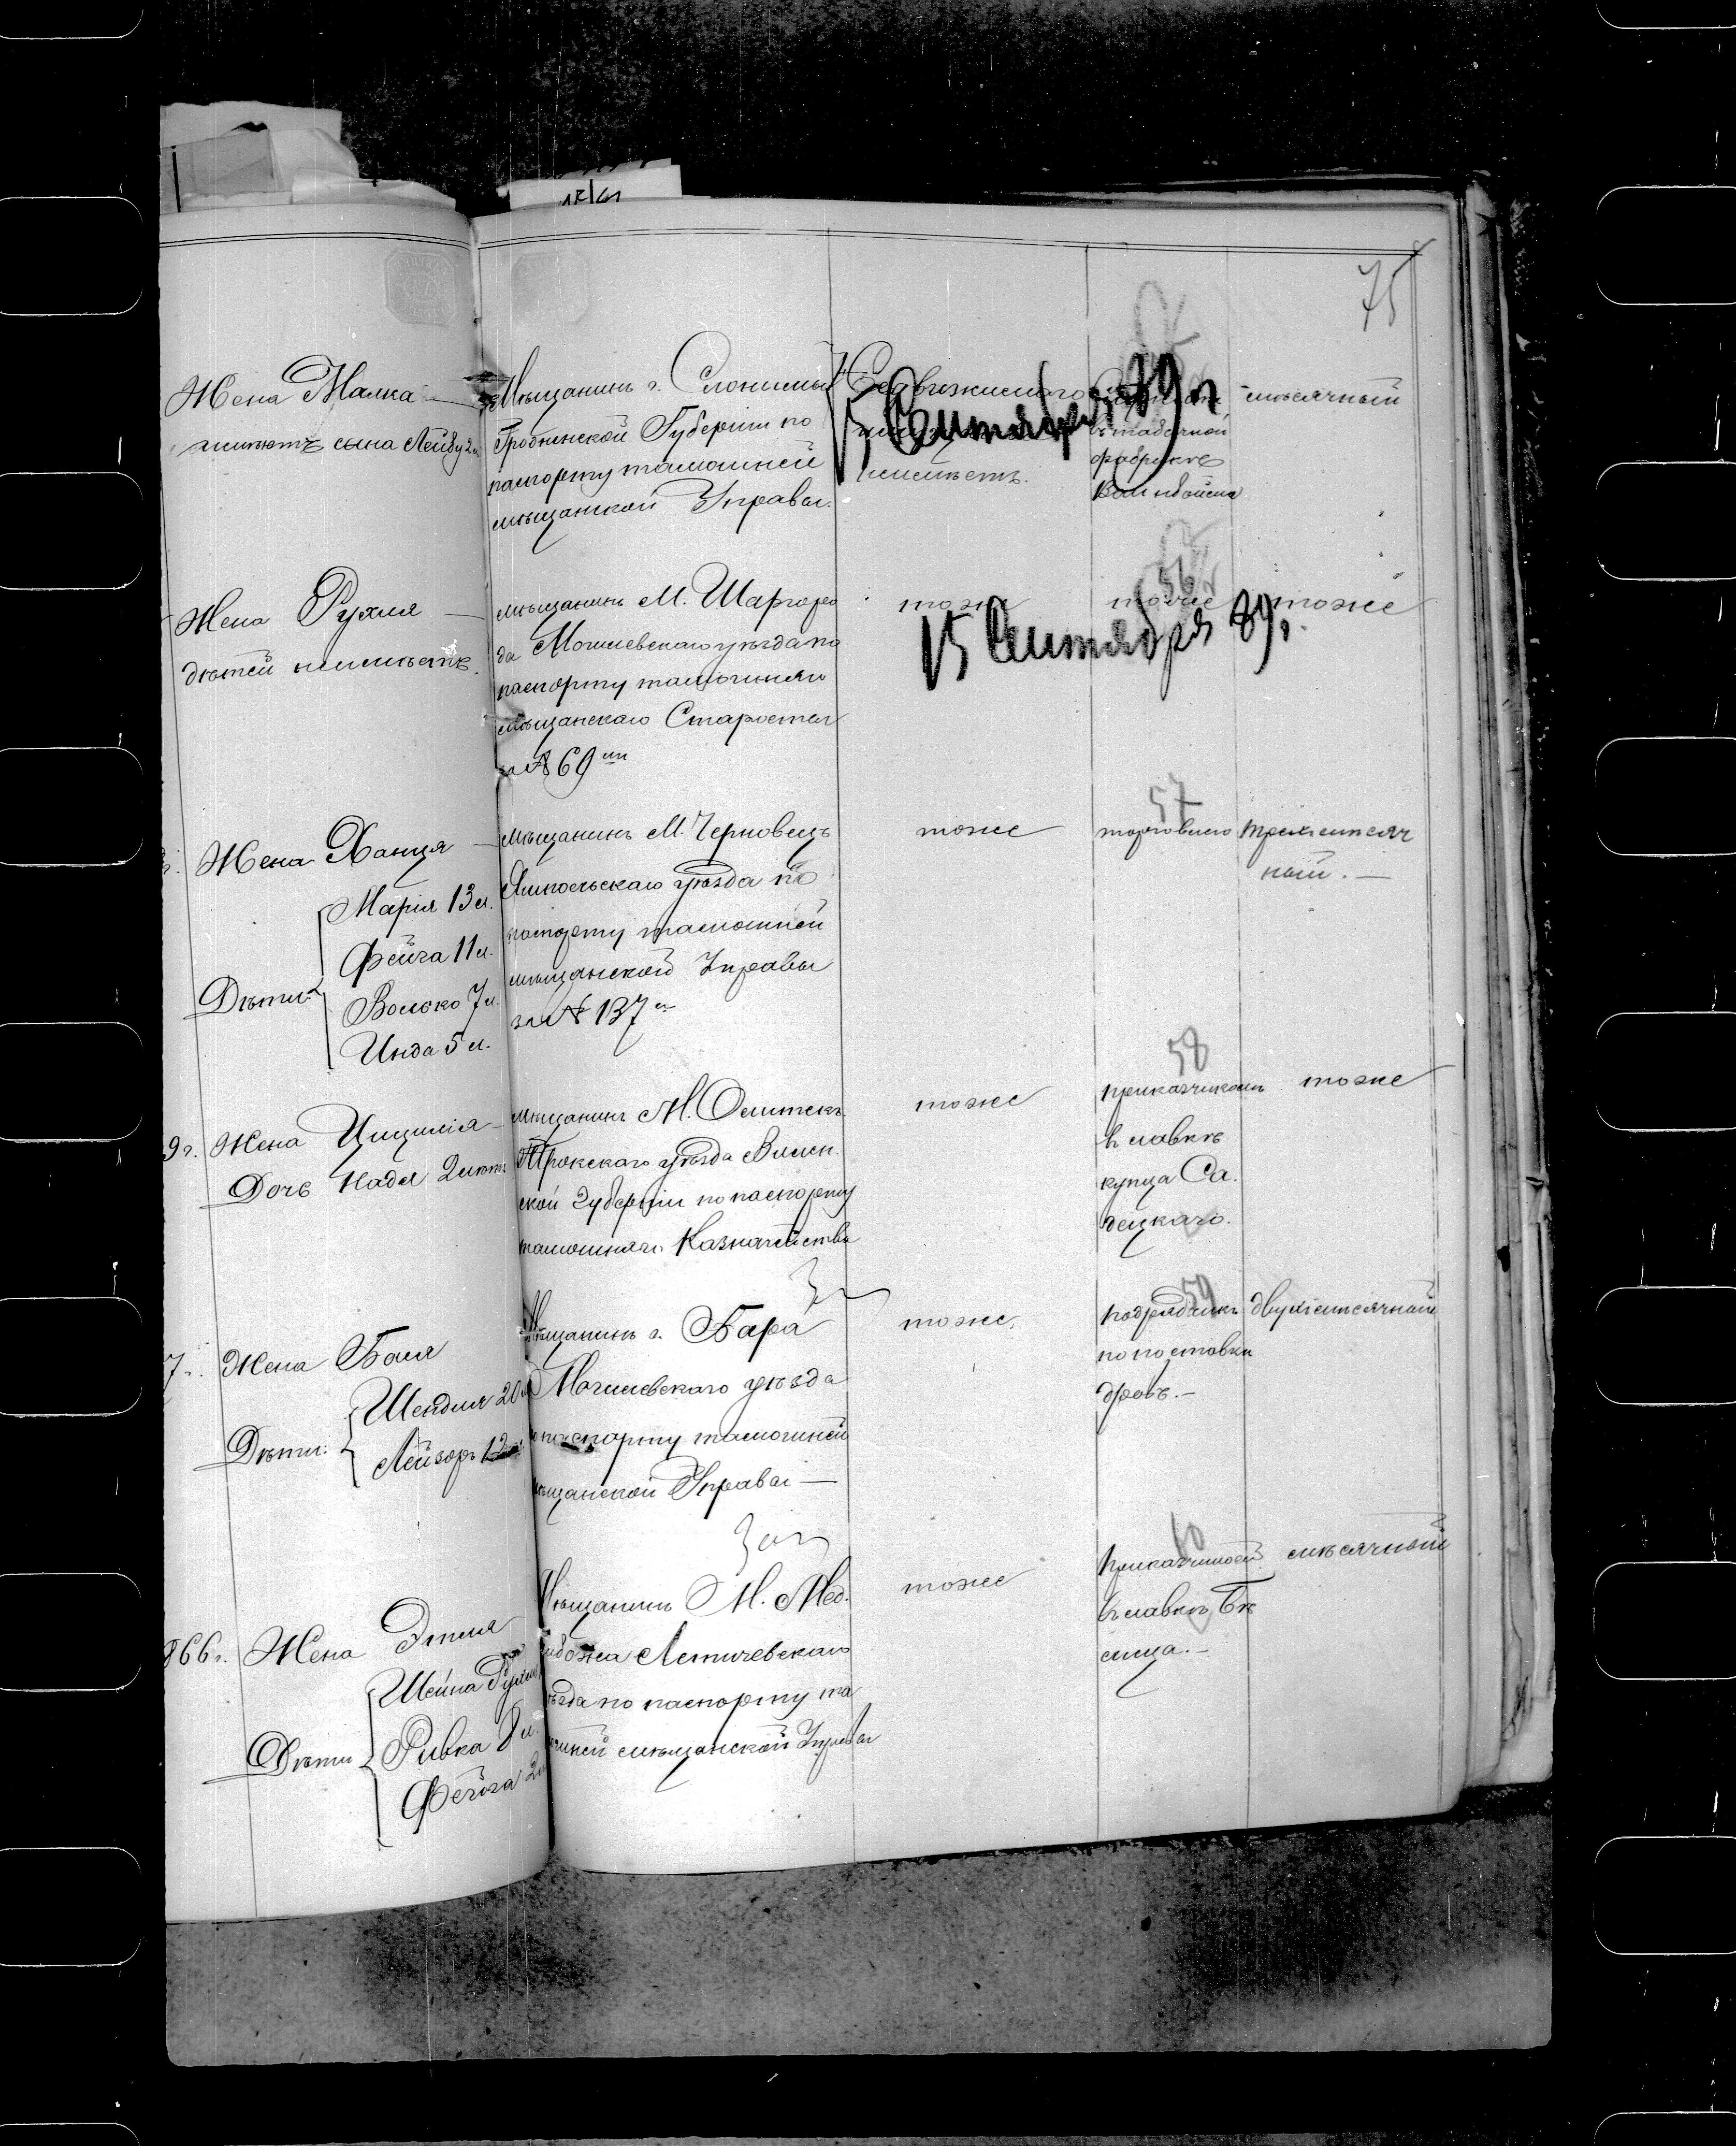 75
Жена Малка
имѣютъ сына Лейбу 2 л.
Мѣщанинъ г. Слонима
Гродненской Губерніи по
паспорту тамошней
мѣщанской Управы.
Недвижимаго
неимѣетъ.
15 Сентября 89 г
въ табачной
фабрикѣ
мѣсячный
Жена Рухля
дѣтей неимѣетъ.
мѣщанинъ М. Шаргоро
да Могилевскаго уѣзда по
паспорту тамошняго
мѣщанскаго Старосты
за № 69
тоже
15 Сентября 89 г.
56
тоже
тоже
Жена Ханця
Дѣти:
Марія 13 л.
Фейга 11 л.
Волько 7 л.
Инда 5 л.
мѣщанинъ М. Черновецъ
Ямпольскаго уѣзда по
паспорту тамошней
мѣщанской Управы
за № 137
тоже
57
торговлею
трехмѣсяч
ный.—
9 г. Жена Цицилія
Дочь Надя 2 лѣтъ
мѣщанинъ М. Олитскъ
Трокскаго уѣзда Вилен.
ской Губерніи по паспорту
тамошняго Казначейства
тоже
58
приказчикомъ
въ лавкѣ
купца Са.
децкаго.
тоже
7 г. Жена Бася
Дѣти:
Шендля 20 л
Лейзоръ 12
Мѣщанинъ г. Бара
Могилевскаго уѣзда
по паспорту тамошней
мѣщанской Управы —
тоже.
59
подрядчикъ
по поставки
дровъ.—
двухмѣсячный
866 г. Жена Этля
Дѣти
Шейна Рухля
Ривка 8 л.
Фейга 2 л
Мѣщанинъ М. Мед.
жибожа Летичевскаго
уѣзда по паспорту та
мошней мѣщанской Управы
тоже
60
въ лавкѣ
мѣсячный